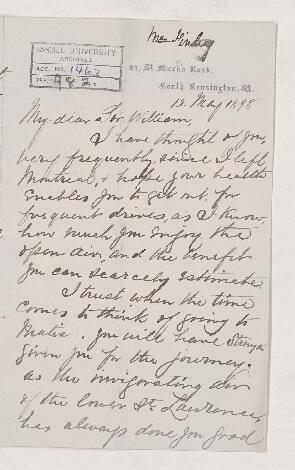 McGILL UNIVERSITY
ARCHIVES
ACC. NO. 1463
St. Mark's Road,
North Kensington. W.
12 May 1898
My dear Sir William,
I have thought of you
very frequently since I left
Montreal, & hope your health
enables you to get out for
frequent drives, as I know
how much you enjoy the
open air, and the benefit
you can scarcely estimate.
I trust when the time
comes to think of going to
Metis. you will have strength
given you for the journey.
as the invigorating air
of the lower St. Lawrence,
has always done you good